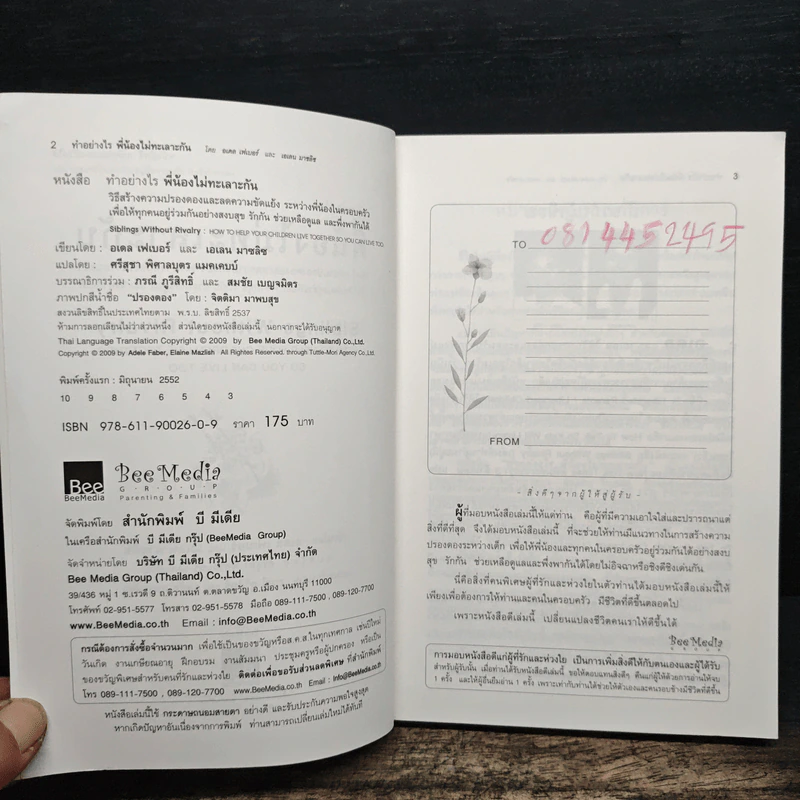 2 ทำอย่างไร พี่น้องไม่ทะเลาะกัน โดย อเดล เฟเบอร์ และ เอเลน มาซลิช
หนังสือ ทำอย่างไร พี่น้องไม่ทะเลาะกัน
วิธีสร้างความปรองดองและลดความขัดแย้ง ระหว่างพี่น้องในครอบครัว
เพื่อให้ทุกคนอยู่ร่วมกันอย่างสงบสุข รักกัน ช่วยเหลือดูแล และพึ่งพากันได้
Siblings Without Rivalry : HOW TO HELP YOUR CHILDREN LIVE TOGETHER SO YOU CAN LIVE TOO
เขียนโดย : อเดล เฟเบอร์ และ เอเลน มาซลิช
แปลโดย : ศรีสุชา พิศาลบุตร แมคเคบบ์
บรรณาธิการร่วม : ภรณี ภูรีสิทธิ์ และ สมชัย เบญจมิตร
ภาพปกสีน้ำชื่อ "ปรองดอง" โดย : จิตติมา มาพบสุข
สงวนลิขสิทธิ์ในประเทศไทยตาม พ.ร.บ. ลิขสิทธิ์ 2537
ห้ามการลอกเลียนไม่ว่าส่วนหนึ่ง ส่วนใดของหนังสือเล่มนี้ นอกจากจะได้รับอนุญาต
Thai Language Translation Copyright © 2009 by Bee Media Group (Thailand) Co.,Ltd.
Copyright © 2009 by Adele Faber, Elaine Mazlish All Rights Reserved. through Tuttle-Mori Agency Co.,Ltd.
พิมพ์ครั้งแรก : มิถุนายน 2552
10 9 8 7 6 5 4 3
ISBN 978-611-90026-0-9 ราคา 175 บาท
Bee
BeeMedia
Bee Media
GROUP
Parenting & Families
จัดพิมพ์โดย สำนักพิมพ์ บี มีเดีย
ในเครือสำนักพิมพ์ บี มีเดีย กรุ๊ป (BeeMedia Group)
จัดจำหน่ายโดย บริษัท บี มีเดีย กรุ๊ป (ประเทศไทย) จำกัด
Bee Media Group (Thailand) Co.,Ltd.
39/436 หมู่ 1 ซ.เรวดี 9 ถ.ติวานนท์ ต.ตลาดขวัญ อ.เมือง นนทบุรี 11000
โทรศัพท์ 02-951-5577 โทรสาร 02-951-5578 มือถือ 089-111-7500 , 089-120-7700
www.BeeMedia.co.th Email : info@BeeMedia.co.th
กรณีต้องการสั่งซื้อจำนวนมาก เพื่อใช้เป็นของขวัญหรือส.ค.ส.ในทุกเทศกาล เช่นปีใหม่
วันเกิด งานเกษียณอายุ ฝึกอบรม งานสัมมนา ประชุมครูหรือผู้ปกครอง หรือเป็น
ของขวัญพิเศษสำหรับคนที่รักและห่วงใย ติดต่อเพื่อขอรับส่วนลดพิเศษ ที่สำนักพิมพ์
โทร 089-111-7500 , 089-120-7700 www.BeeMedia.co.th Email : info@BeeMedia.co.th
หนังสือเล่มนี้ใช้ กระดาษถนอมสายตา อย่างดี และรับประกันความพอใจสูงสุด
หากเกิดปัญหาอันเนื่องจากการพิมพ์ ท่านสามารถเปลี่ยนเล่มใหม่ได้ทันที
3
TO 0814452495
FROM
- สิ่งดีๆจากผู้ให้สู่ผู้รับ -
ผู้ที่มอบหนังสือเล่มนี้ให้แด่ท่าน คือผู้ที่มีความเอาใจใส่และปรารถนาแต่
สิ่งที่ดีที่สุด จึงได้มอบหนังสือเล่มนี้ ที่จะช่วยให้ท่านมีแนวทางในการสร้างความ
ปรองดองระหว่างเด็ก เพื่อให้พี่น้องและทุกคนในครอบครัวอยู่ร่วมกันได้อย่างสงบ
สุข รักกัน ช่วยเหลือดูแลและพึ่งพากันได้โดยไม่อิจฉาหรือชิงดีชิงเด่นกัน
นี่คือสิ่งที่คนพิเศษผู้ที่รักและห่วงใยในตัวท่านได้มอบหนังสือเล่มนี้ให้
เพียงเพื่อต้องการให้ท่านและคนในครอบครัว มีชีวิตที่ดีขึ้นตลอดไป
เพราะหนังสือดีเล่มนี้ เปลี่ยนแปลงชีวิตคนเราให้ดีขึ้นได้
Bee Media
GROUP
การมอบหนังสือดีแก่ผู้ที่รักและห่วงใย เป็นการเพิ่มสิ่งดีให้กับตนเองและผู้ได้รับ
สำหรับผู้รับนั้น เมื่อท่านได้รับหนังสือดีเล่มนี้ ขอให้ตอบแทนสิ่งดีๆ คืนแก่ผู้ให้ด้วยการอ่านให้จบ
1 ครั้ง และให้ผู้อื่นยืมอ่าน 1 ครั้ง เพราะเท่ากับท่านได้ช่วยให้ตัวเองและคนรอบข้างมีชีวิตที่ดีขึ้น